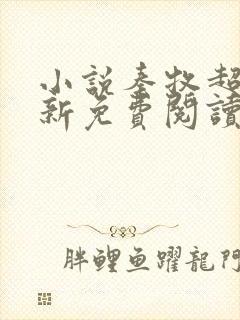 小說秦牧超
新免費閱讀
胖鯉魚躍龍門